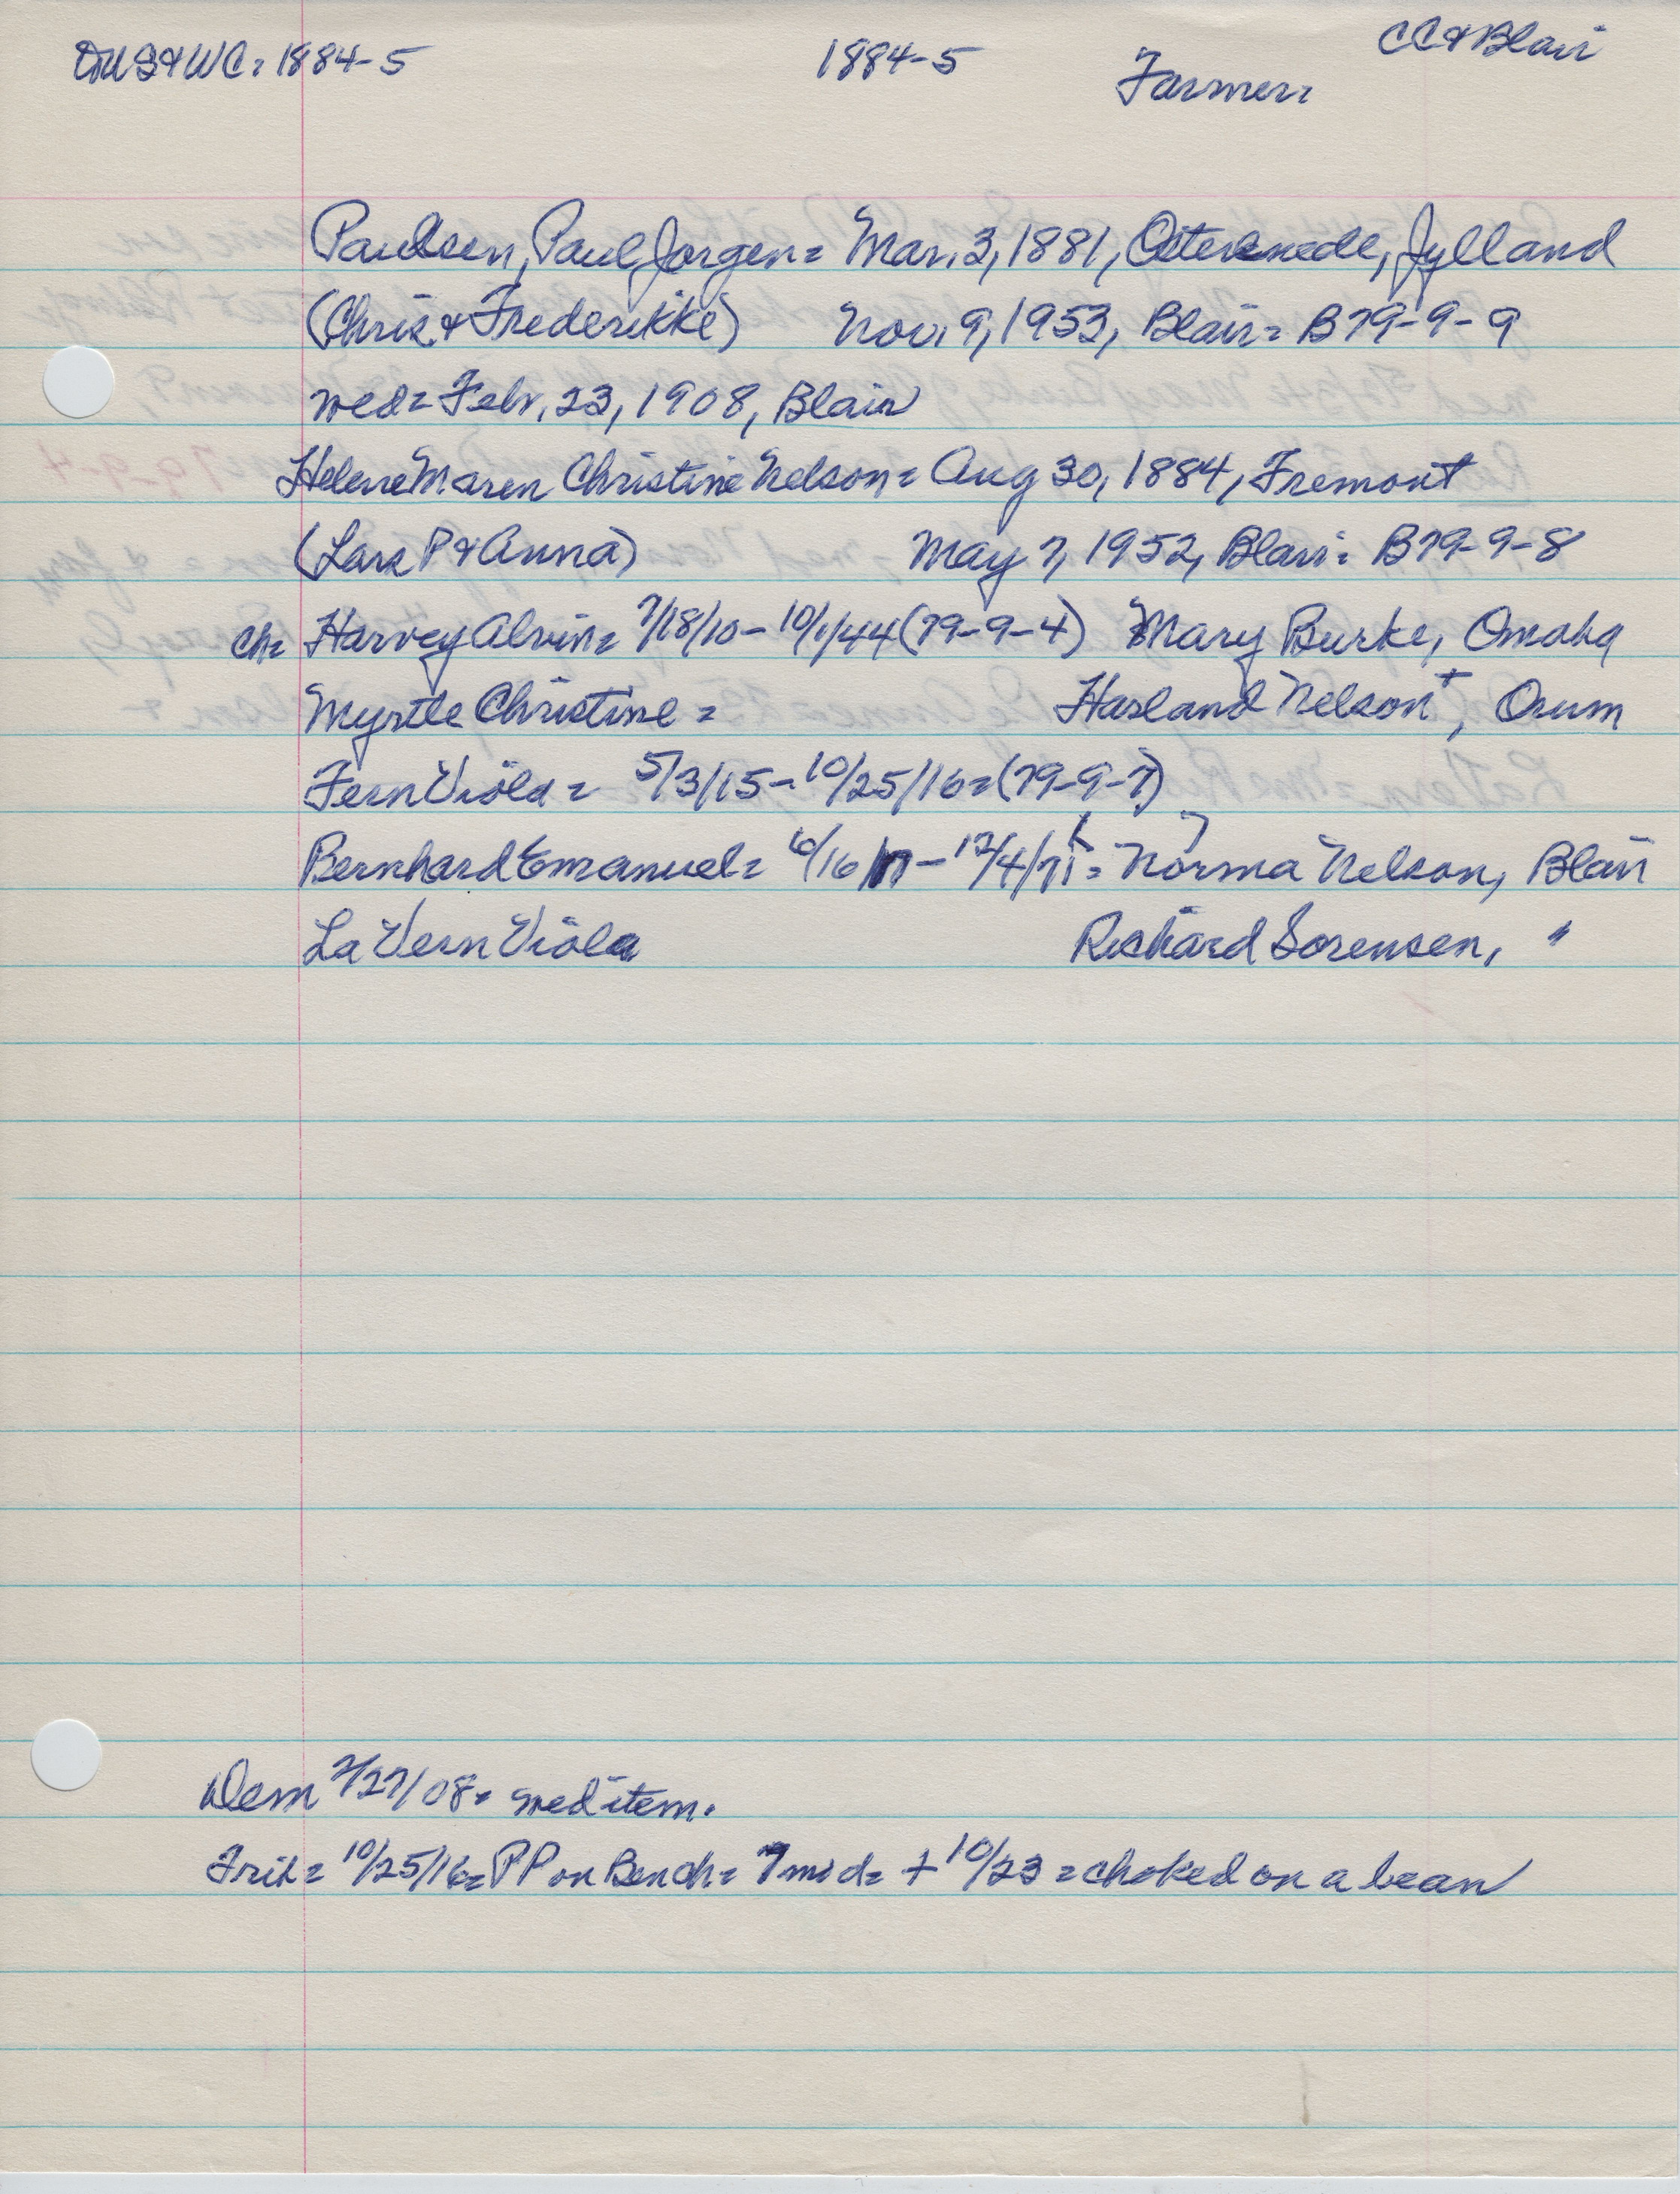 US&WC = 1884-5 1884-5 CC & Blair
Farmer =
Paulsen, Paul Jorgen = Mar. 3, 1881, Jylland
(Chris & Frederikke) Nov. 9, 1953, Blair = B79-9-9
wed = Febr. 23, 1908, Blair
Helene Maren Christine Nelson = Aug 30, 1884, Fremont
(Lars P & Anna) May 7, 1952, Blair = B79-9-8
Ch = Harvey Alvin = 7/18/10 - 10/1/44 (79-9-4) Mary Burke, Omaha
Myrtle Christine = Harland Nelson +, Orum
Fern Viola = 5/3/15 - 10/25/16 = (79-9-7)
Bernhard Emanuel = 6/16/17 - 12/4/71 = Norma Nelson, Blair
La Vern Viola Richard Sorensen, "
Dem 2/27/08 = wed item.
Trib = 10/25/16 = PP on Bench = + 10/23 = choked on a bean